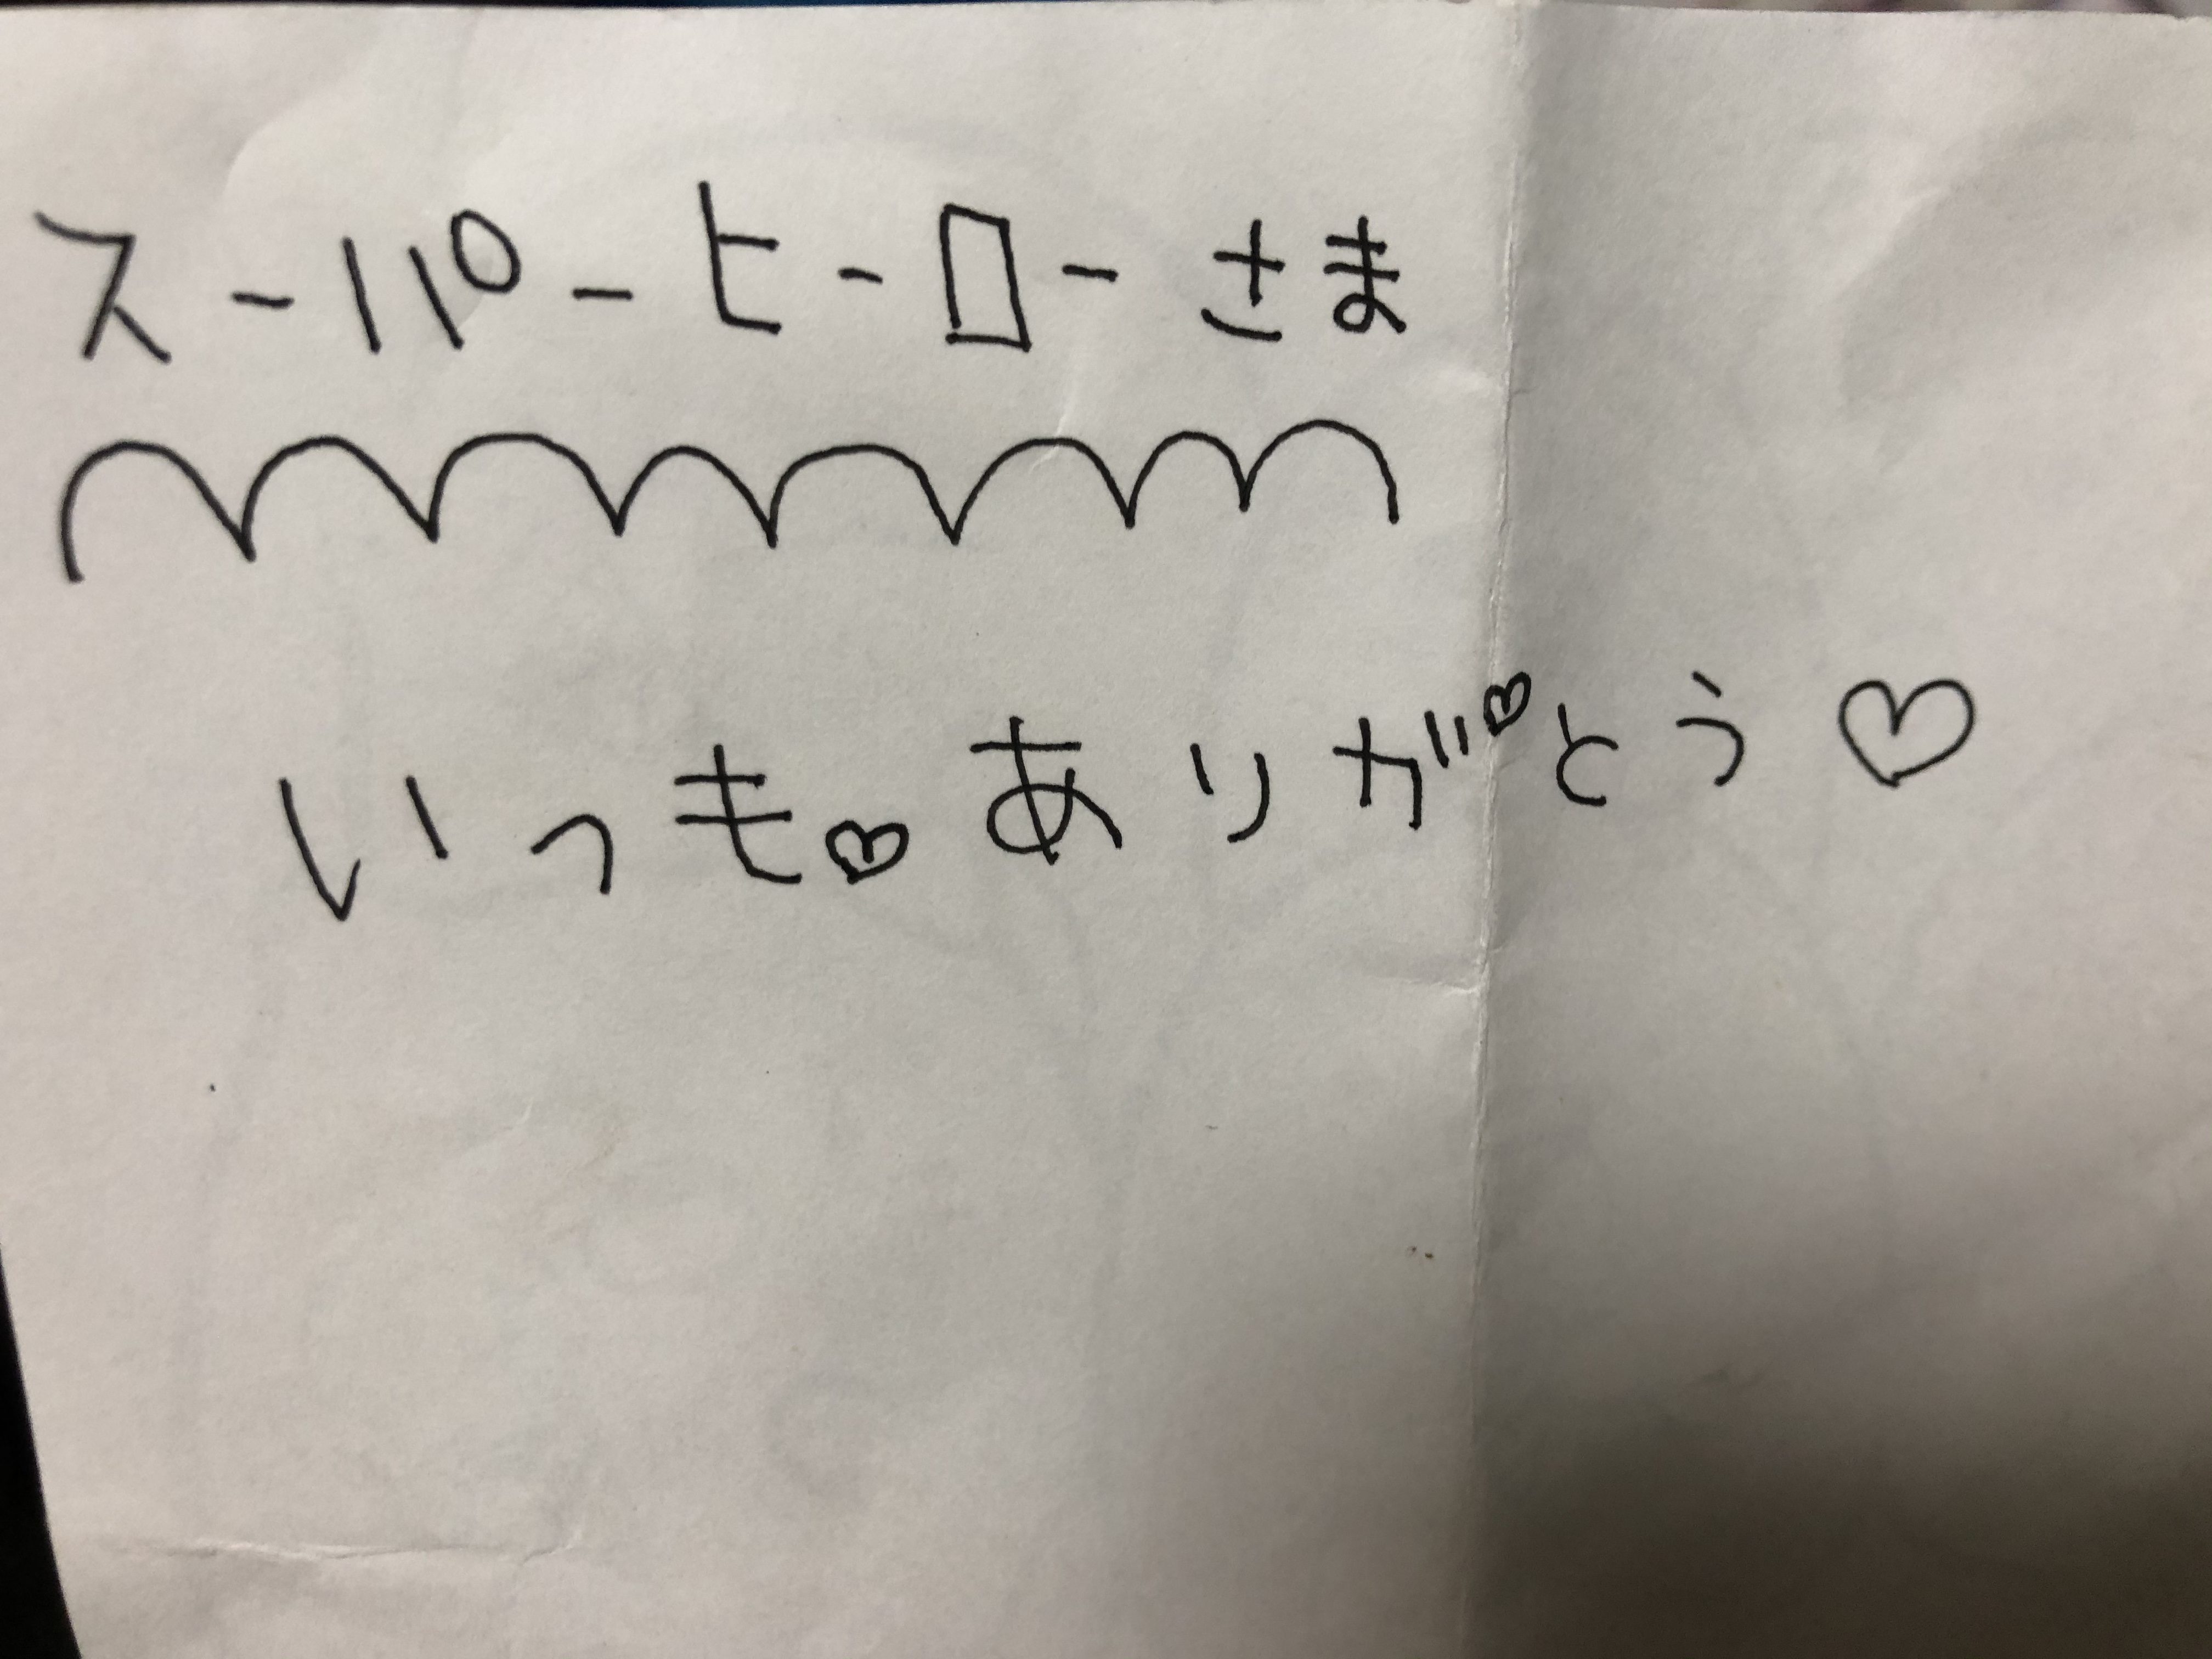 スーパーヒーローさま
いつも♡ありがとう♡